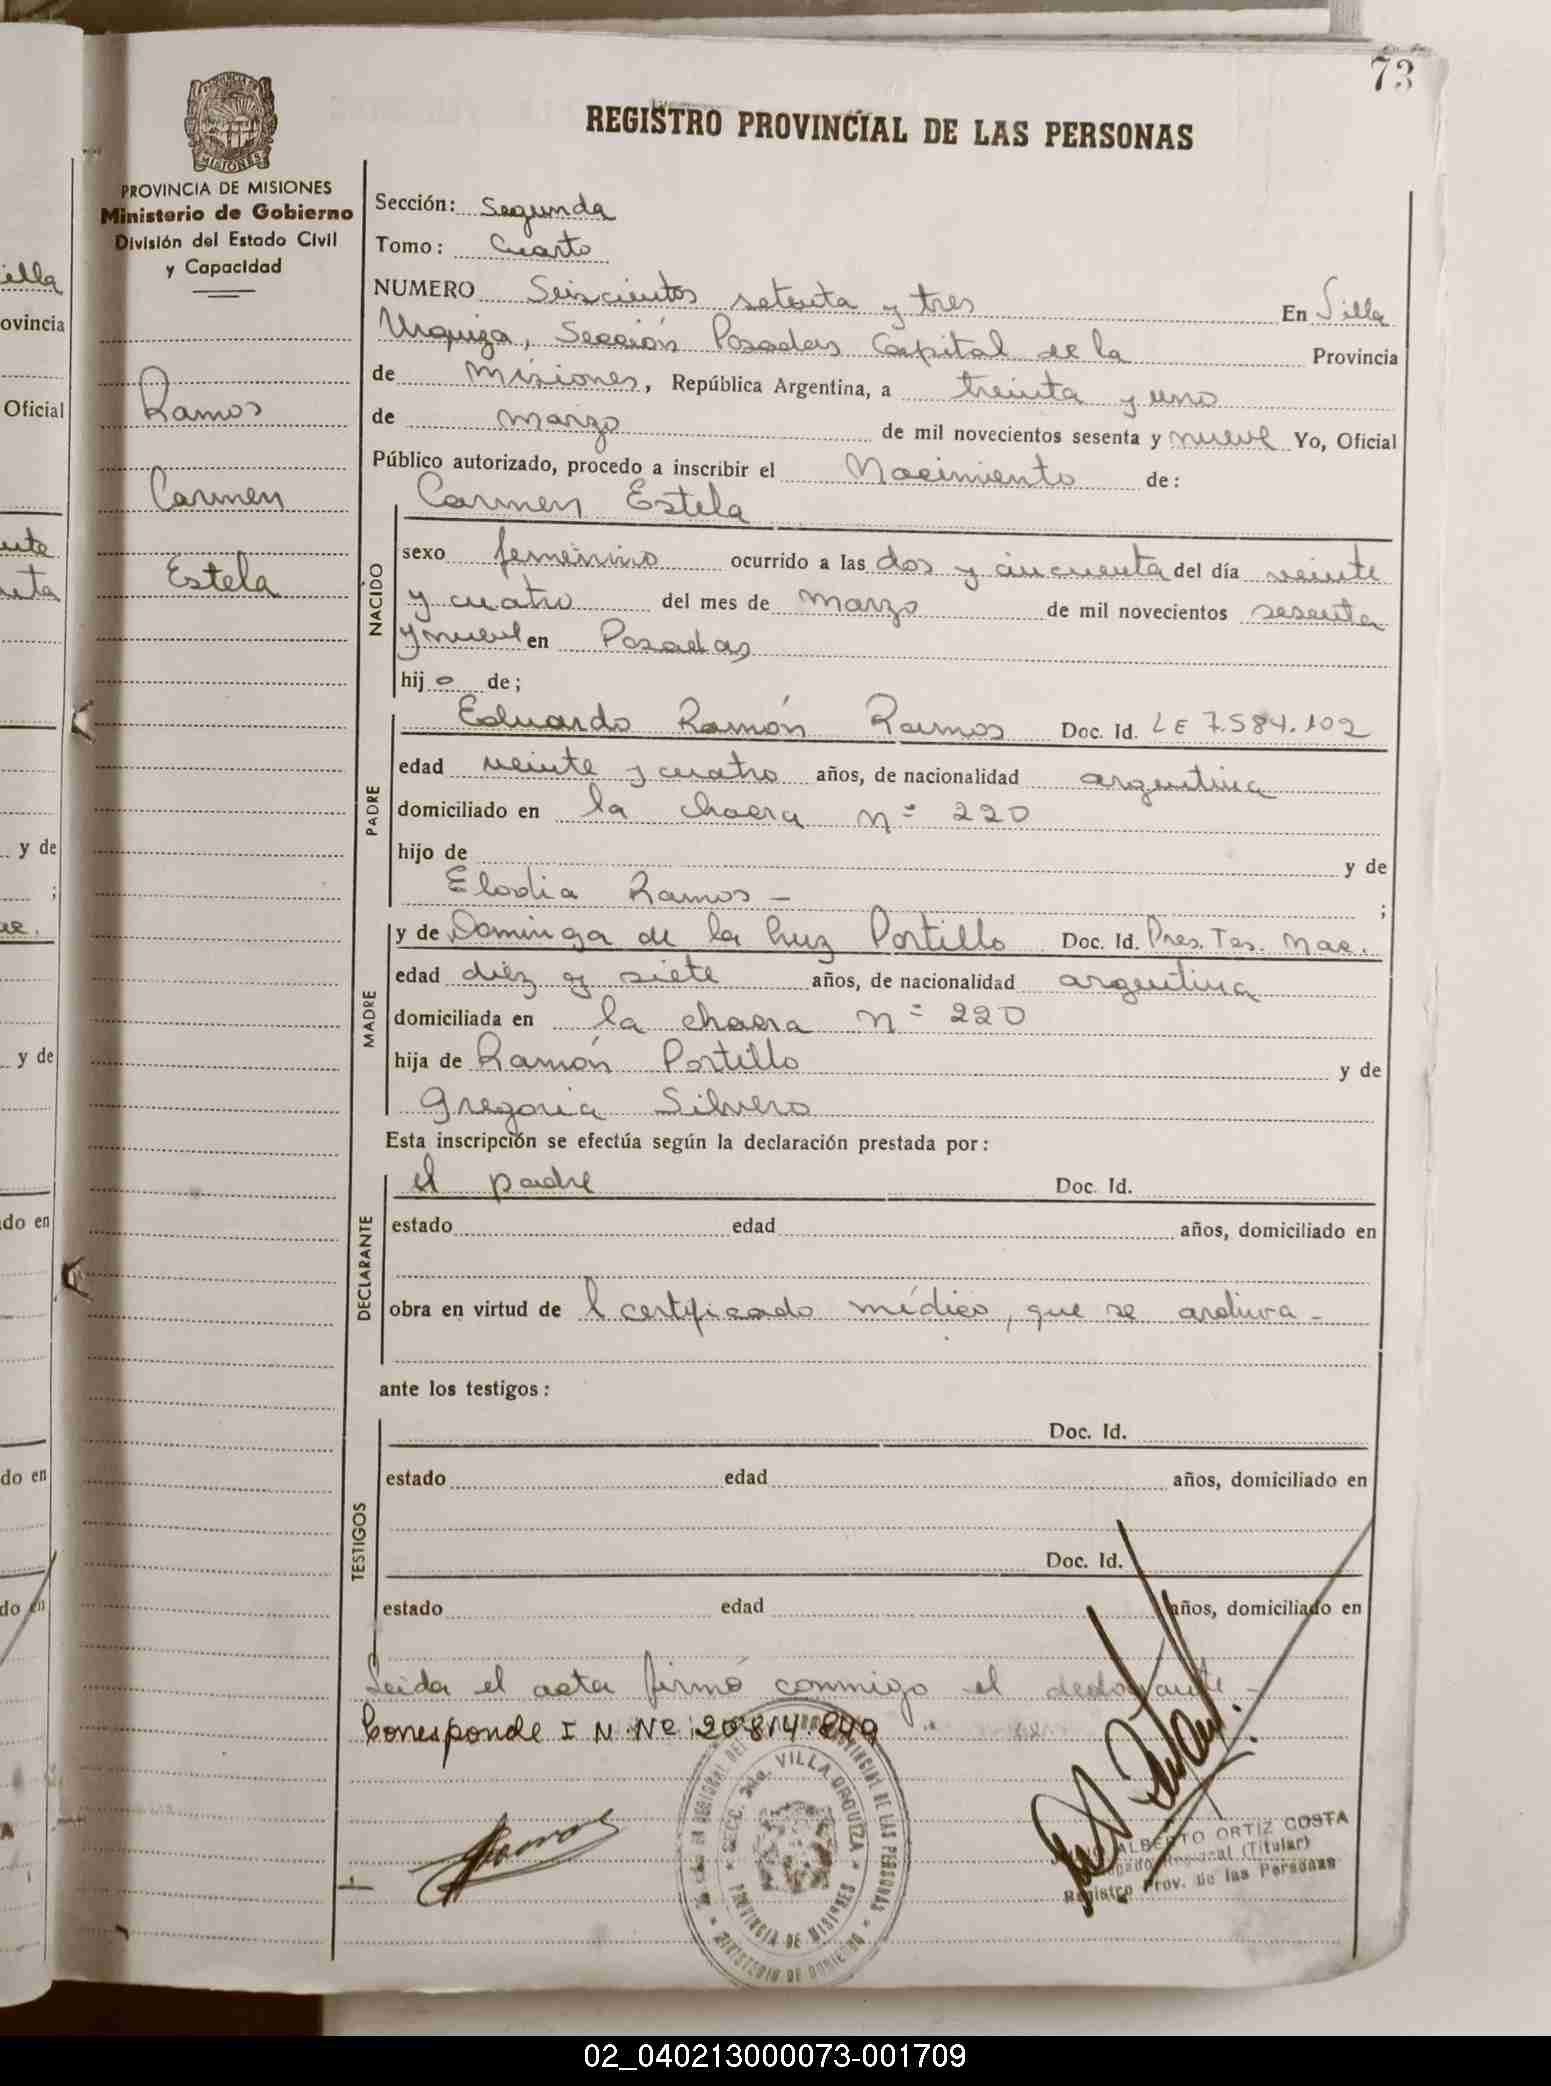 73
REGISTRO PROVINCIAL DE LAS PERSONAS
MISIONES
PROVINCIA DE MISIONES
Ministerio de Gobierno
División del Estado Civil
y Capacidad
Ramos
Carmen
Estela
Sección: Segunda
Tomo: Cuarto
NUMERO Seiscientos setenta y tres En Villa
Urquiza, Sección Posadas Capital de la Provincia
de Misiones, República Argentina, a treinta y uno
de marzo de mil novecientos sesenta y nueve Yo, Oficial
Público autorizado, procedo a inscribir el Nacimiento de:
Carmen Estela
NACIDO
sexo femenino ocurrido a las dos y cincuenta del día veinte
y cuatro del mes de marzo de mil novecientos sesenta
y nueve en Posadas
hij o de;
PADRE
Eduardo Ramón Ramos Doc. Id. LE 7.584.102
edad veinte y cuatro años, de nacionalidad argentina
domiciliado en la chacra n= 220
hijo de y de
Elodia Ramos - ;
MADRE
y de Dominga de la Luz Portillo Doc. Id. Pres. Tes. Nac.
edad diez y siete años, de nacionalidad argentina
domiciliada en la chacra n= 220
hija de Ramón Portillo y de
Gregoria Silvero
Esta inscripción se efectúa según la declaración prestada por:
DECLARANTE
el padre Doc. Id.
estado edad años, domiciliado en
obra en virtud de l certificado médico, que se archiva -
ante los testigos:
TESTIGOS
Doc. Id.
estado edad años, domiciliado en
Doc. Id.
estado edad años, domiciliado en
Leida el acta firmó conmigo el declarante -
Corresponde I N. Nº: 20.814.849
SECC. 2da. VILLA URQUIZA
PROVINCIA DE MISIONES
MINISTERIO DE GOBIERNO
PROVINCIAL DE LAS PERSONAS
ALBERTO ORTIZ COSTA
(Titular)
Registro Prov. de las Personas
illa
ovincia
Oficial
y de
;
y de
do en
do en
do en
02_040213000073-001709